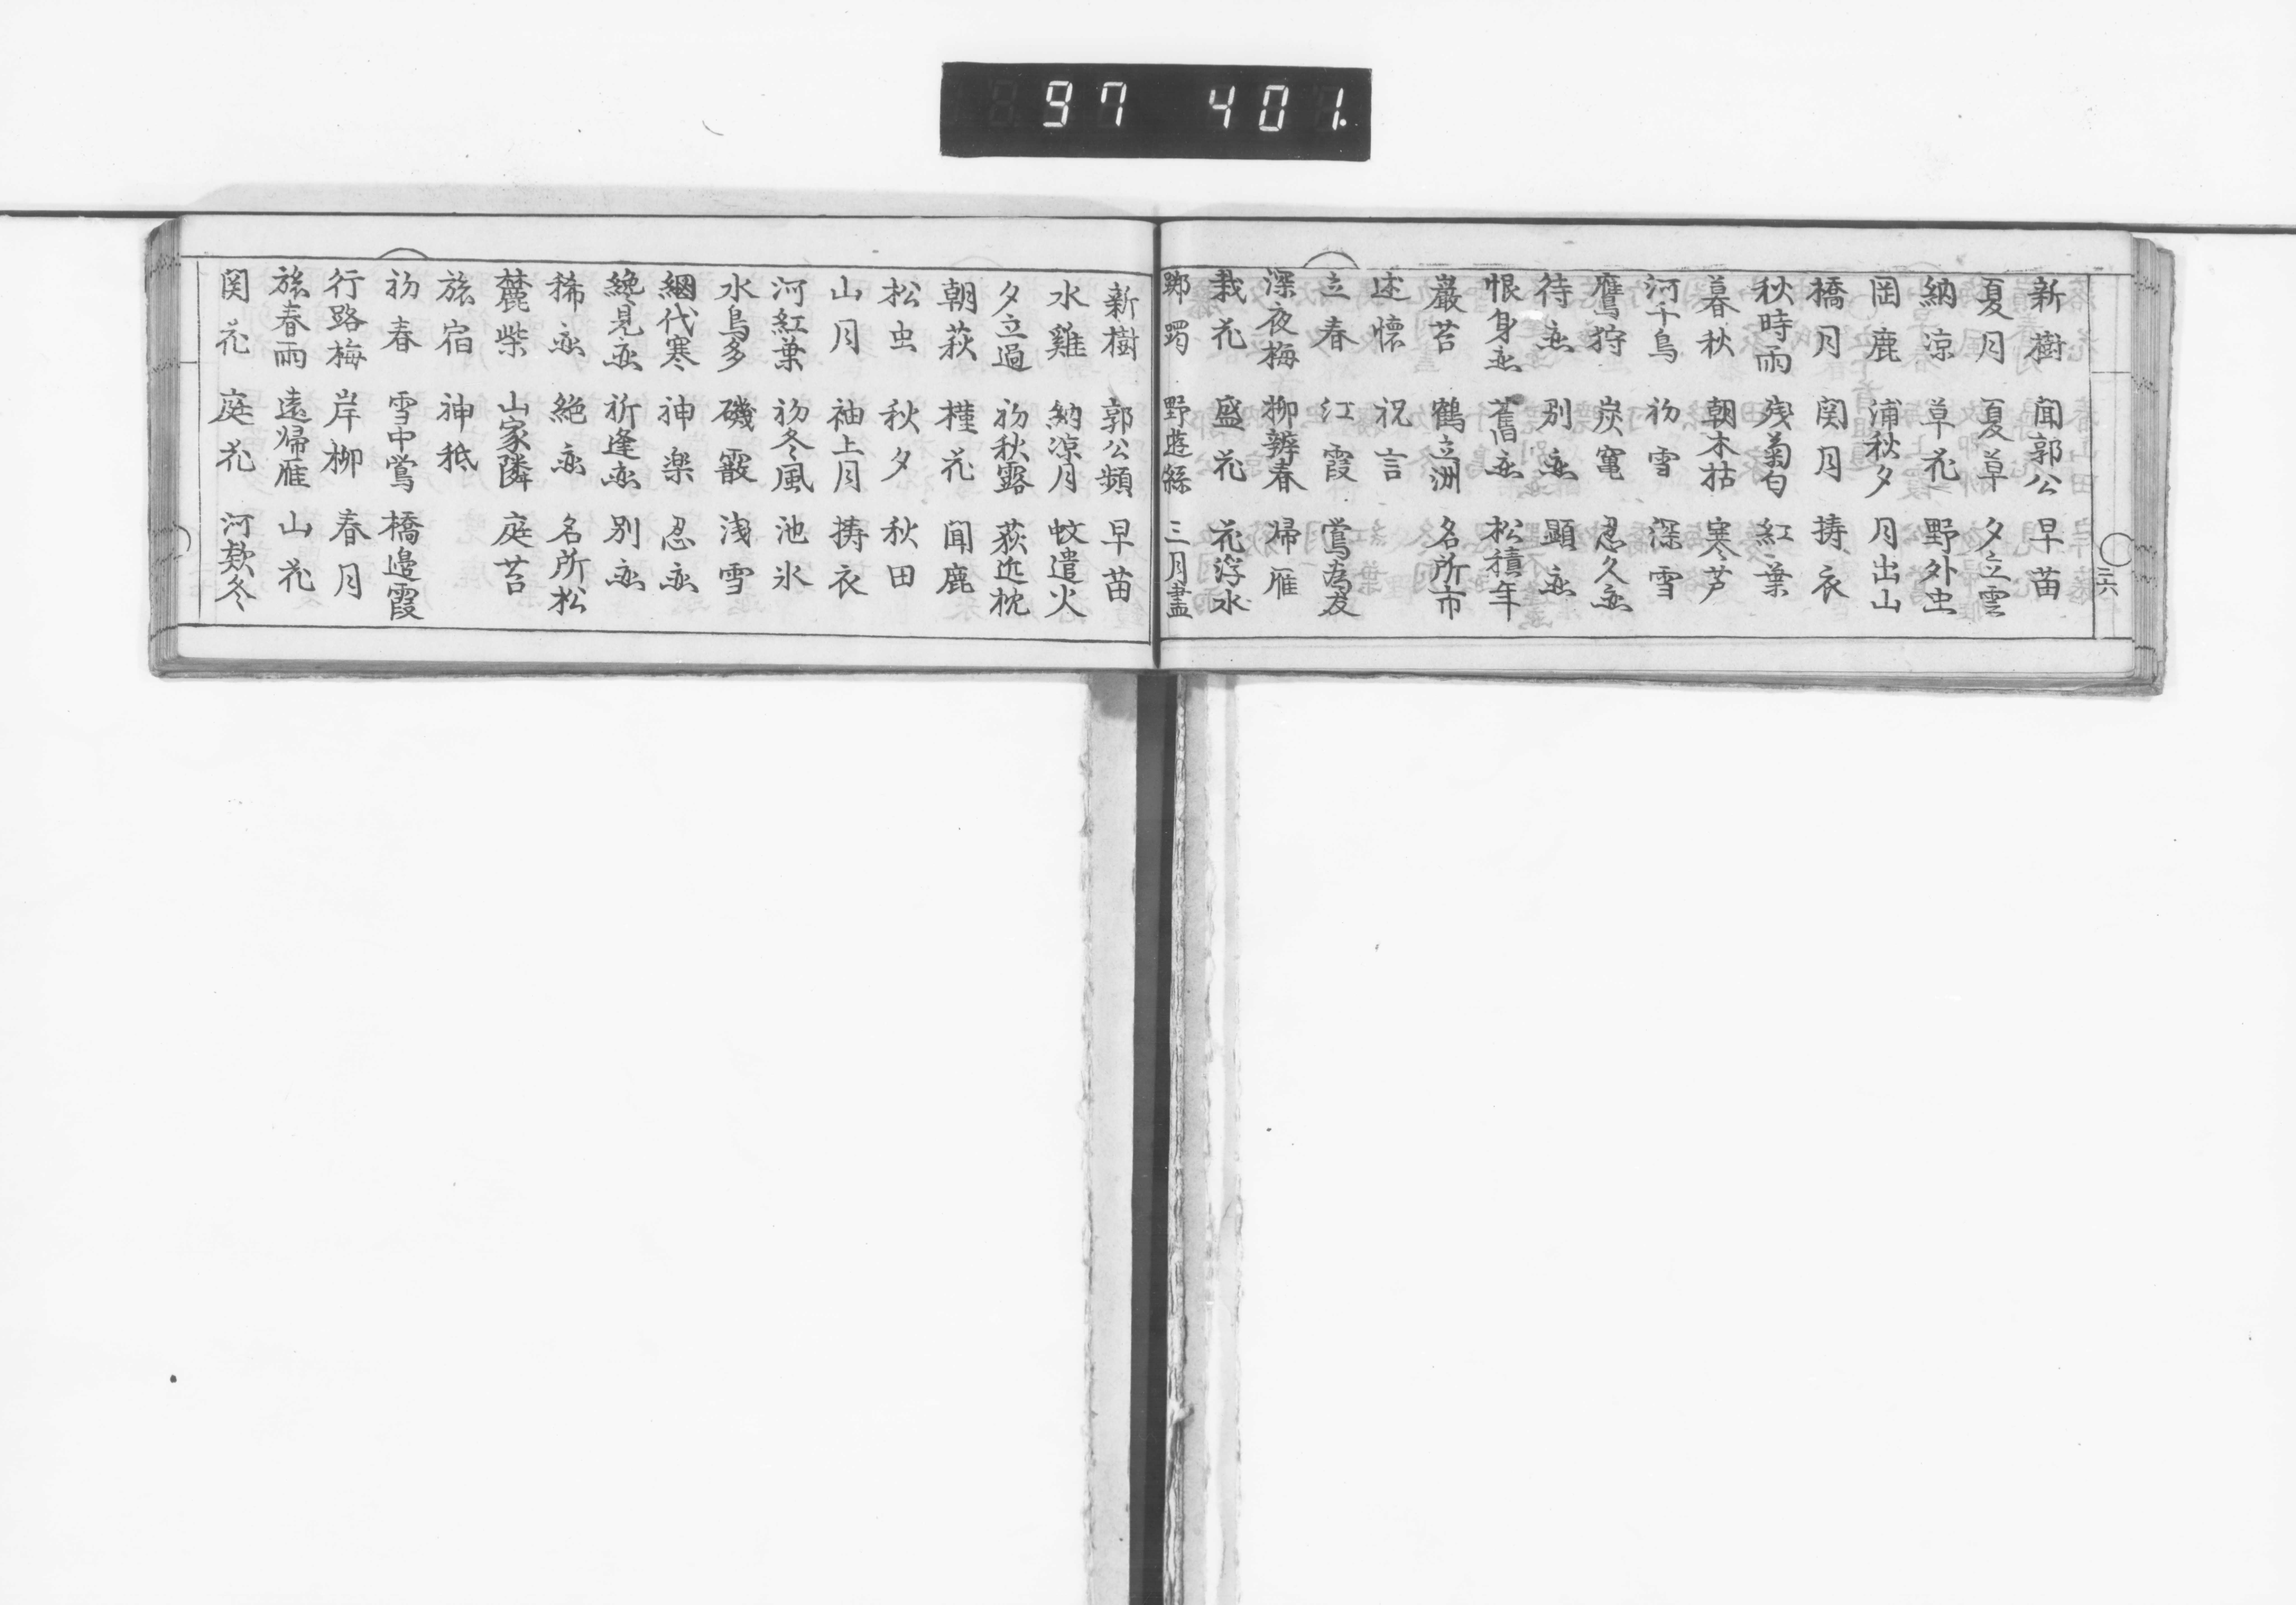 97 401.
三六
新樹 聞郭公 早苗
夏月 夏草 夕立雲
納涼 草花 野外虫
岡鹿 浦秋夕 月出山
橋月 関月 擣衣
秋時雨 残菊匂 紅葉
暮秋 朝木枯 寒芦
河千鳥 初雪 深雪
鷹狩 炭竃 忍久恋
待恋 別恋 顕恋
恨身恋 舊恋 松積年
巌苔 鶴立洲 名所市
述懐 祝言
立春 紅霞 鶯為友
深夜梅 柳辨春 帰雁
栽花 盛花 花浮水
躑躅 野遊絲 三月盡
新樹 郭公頻 早苗
水雞 納涼月 蚊遣火
夕立過 初秋露 荻近枕
朝萩 槿花 聞鹿
松虫 秋夕 秋田
山月 袖上月 擣衣
河紅葉 初冬風 池氷
水鳥多 磯霰 浅雪
網代寒 神楽 忍恋
纔見恋 祈逢恋 別恋
稀恋 絶恋 名所松
麓柴 山家隣 庭苔
旅宿 神祇
初春 雪中鶯 橋邊霞
行路梅 岸柳 春月
旅春雨 遠帰雁 山花
関花 庭花 河欵冬